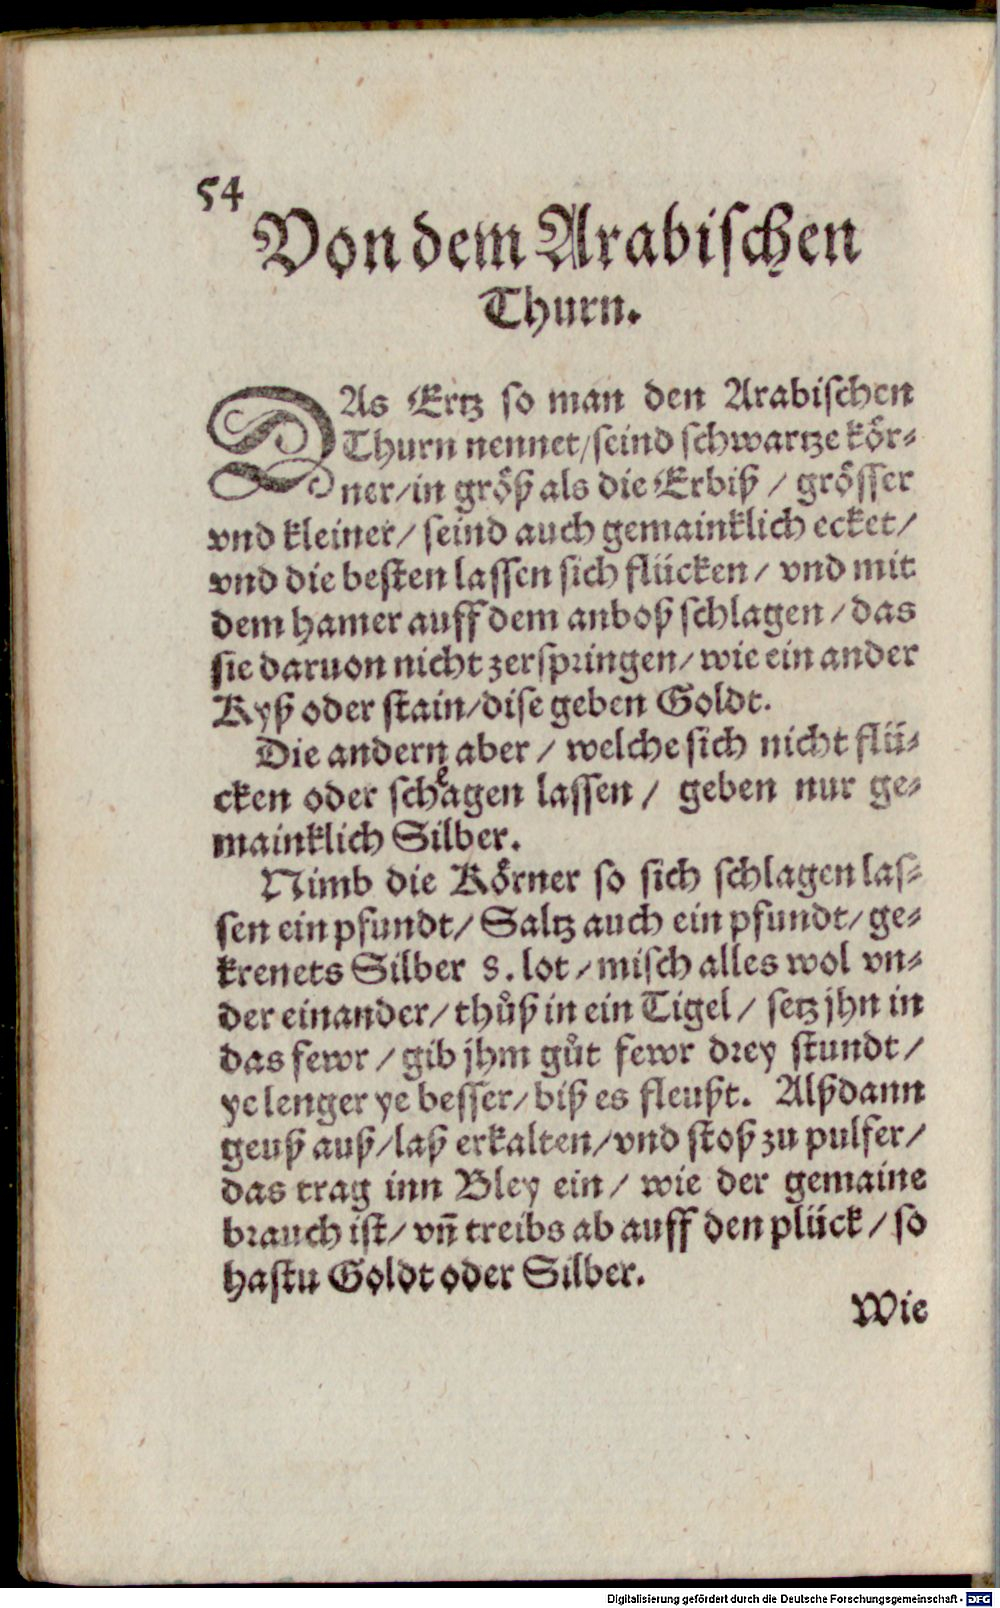 54
Von dem Arabischen
Thurn.
DAs Ertz so man den Arabischen
Thurn nennet/seind schwartze koͤr⸗
ner/in groͤß als die Erbiß / groͤsser
vnd kleiner/ seind auch gemainklich ecket/
vnd die besten lassen sich fluͤcken/ vnd mit
dem hamer auff dem anboß schlagen/das
sie daruon nicht zerspringen/wie ein ander
Kyß oder stain/dise geben Goldt.
Die andern aber / welche sich nicht fluͤ⸗
cken oder schlagen lassen/ geben nur ge⸗
mainklich Silber.
Nimb die Koͤrner so sich schlagen las⸗
sen ein pfundt/ Saltz auch ein pfundt/ ge⸗
krenets Silber 8. lot/misch alles wol vn⸗
der einander/thuͦß in ein Tigel/ setz jhn in
das fewr/gib jhm guͦt fewr drey stundt/
ye lenger ye besser/biß es fleußt. Alßdann
geuß auß/laß erkalten/vnd stoß zu pulfer/
das trag inn Bley ein/ wie der gemaine
brauch ist/ vñ treibs ab auff den pluͤck/so
hastu Goldt oder Silber.
Wie
Digitalisierung gefördert durch die Deutsche Forschungsgemeinschaft - DFG